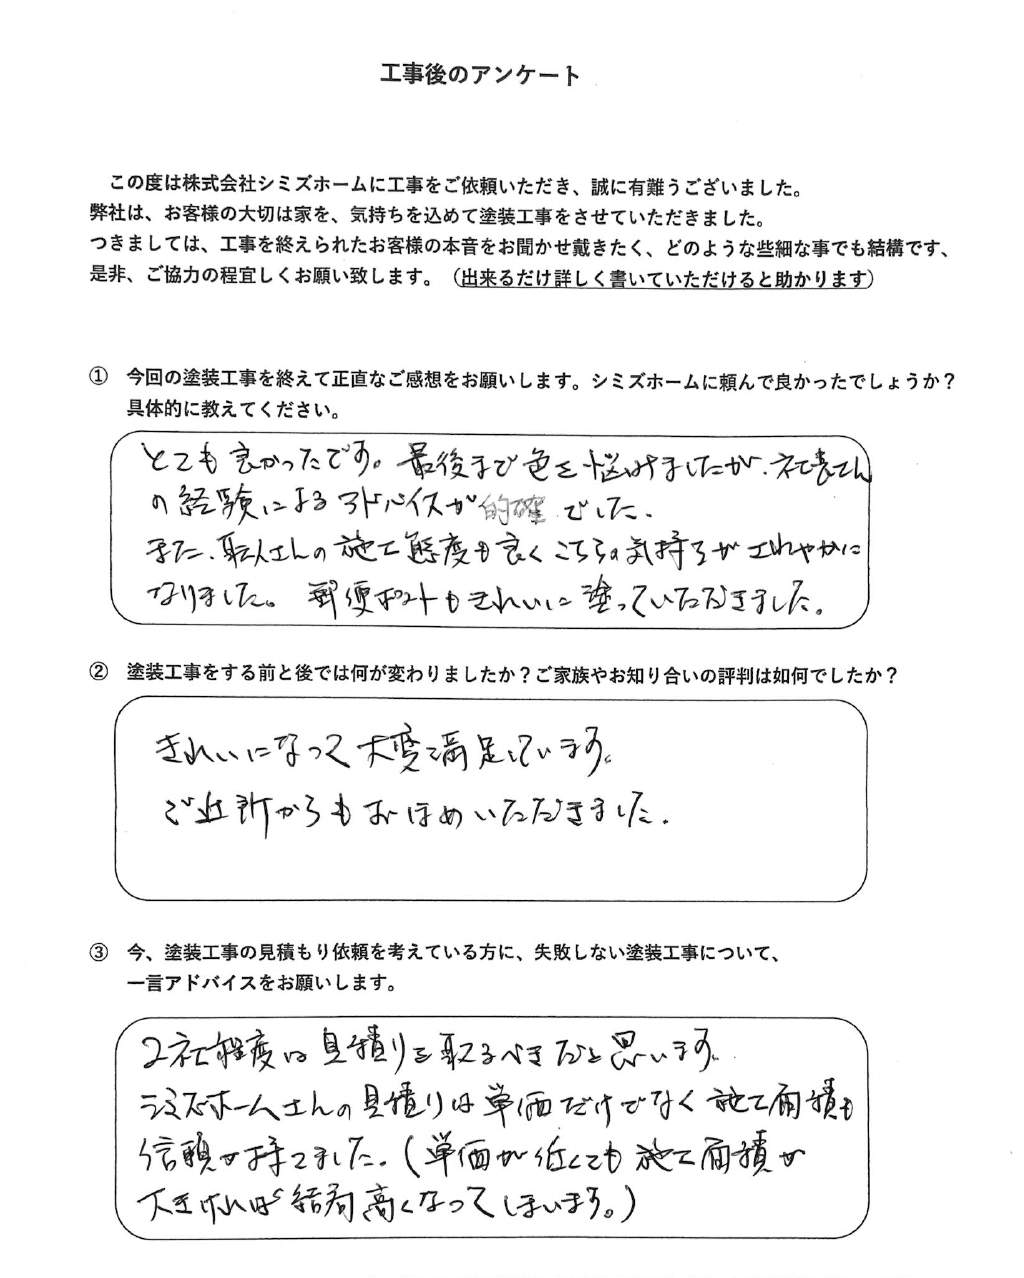 工事後のアンケート
この度は株式会社シミズホームに工事をご依頼いただき、誠に有難うございました。
弊社は、お客様の大切は家を、気持ちを込めて塗装工事をさせていただきました。
つきましては、工事を終えられたお客様の本音をお聞かせ戴きたく、どのような些細な事でも結構です、
是非、ご協力の程宜しくお願い致します。（出来るだけ詳しく書いていただけると助かります）
① 今回の塗装工事を終えて正直なご感想をお願いします。シミズホームに頼んで良かったでしょうか？
具体的に教えてください。
とても良かったです。最後まで色を悩みましたが、社長さん
の経験によるアドバイスが的確でした。
また、職人さんの施工態度も良くこちらの気持ちが
なりました。郵便ポストもきれいに塗っていただきました。
② 塗装工事をする前と後では何が変わりましたか？ご家族やお知り合いの評判は如何でしたか？
きれいになって大変満足しています。
ご近所からもおほめいただきました。
③ 今、塗装工事の見積もり依頼を考えている方に、失敗しない塗装工事について、
一言アドバイスをお願いします。
2社程度は見積りを取るべきだと思います。
シミズホームさんの見積りは単価だけでなく施工面積も
信頼が持てました。（単価が低くても施工面積が
大きければ結局高くなってしまいます。）